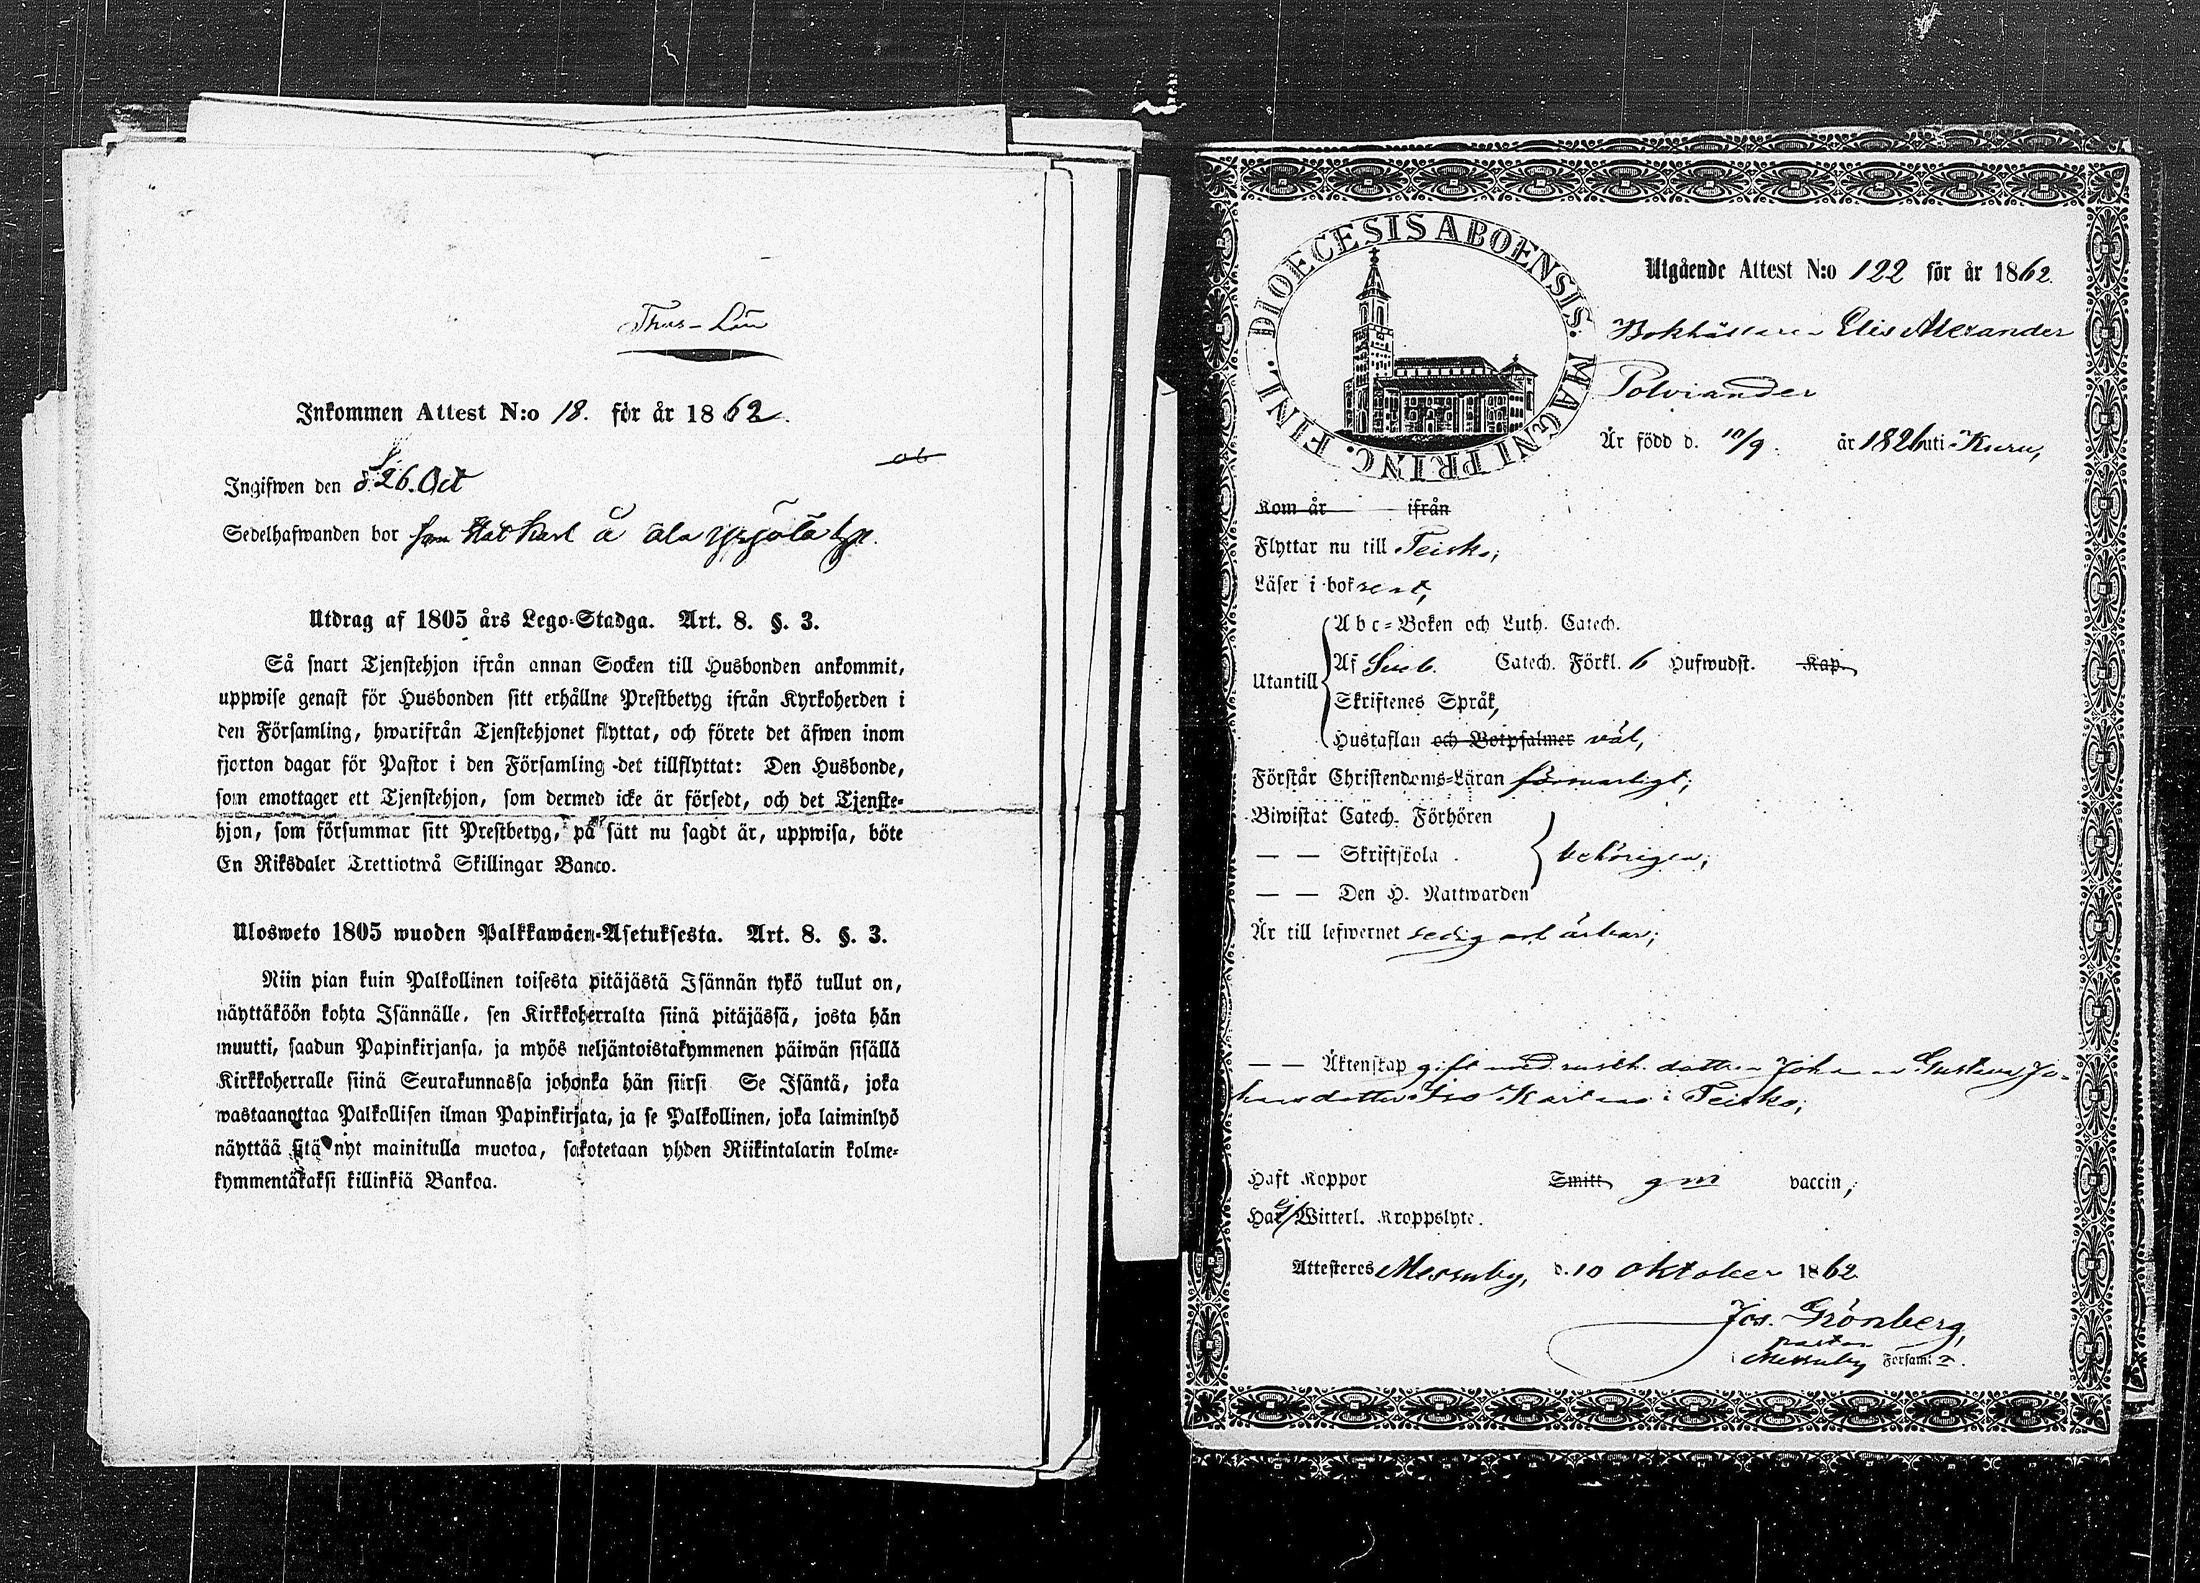 Inkommen Attest N:o 18. för år 1862.
Ingifwen den d. 26. Oct
Sedelhafwanden bor som Stat Karl å Ala
Utdrag af 1805 års Lego-Stadga. Art. 8. §. 3.
Så snart Tjenstehjon ifrån annan Socken till Husbonden ankommit,
uppwise genast för Husbonden sitt erhållne Prestbetyg ifrån Kyrkoherden i
den Församling, hwarifrån Tjenstehjonet flyttat, och förete det äfwen inom
fjorton dagar för Pastor i den Församling det tillflyttat: Den Husbonde,
som emottager ett Tjenstehjon, som dermed icke är försedt, och det Tjenste-
hjon, som försummar sitt Prestbetyg, på sätt nu sagdt är, uppwisa, böte
En Riksdaler Trettiotwå Skillingar Banco.
Ulosweto 1805 wuoden Palkkawäen-Asetuksesta. Art. 8. §. 3.
Niin pian kuin Palkollinen toisesta pitäjästä Isännän tykö tullut on,
näyttäköön kohta Isännälle, sen Kirkkoherralta siinä pitäjässä, josta hän
muutti, saadun Papinkirjansa, ja myös neljäntoistakymmenen päiwän sisällä
Kirkkoherralle siinä Seurakunnassa johonka hän siirsi Se Isäntä, joka
wastaanottaa Palkollisen ilman Papinkirjata, ja se Palkollinen, joka laiminlyö
näyttää sitä nyt mainitulla muotoa, sakotetaan yhden Riikintalarin kolme-
kymmentäkaksi killinkiä Bankoa.
DIOECESIS ABOENSIS. MAGNI PRINC. FINL.
Utgående Attest N:o 122 för år 1862.
Bokhållaren Elis Alexander
Polviander
Är född d. 10/9. år 1826 uti Kuru,
Kom år ifrån
Flyttar nu till Teisko;
Läser i bok rent,
Abc-Boken och Luth. Catech.
Utantill Af Sueb. Catech. Förkl. 6 Hufwudst. Kap.
Skriftenes Språk,
Hustaflan och Botpsalmer väl,
Förstår Christendoms-Läran försvarligt;
Biwistat Catech. Förhören
— — Skriftskola behörigen;
— — Den H. Nattwarden
Är till lefwernet sedig och ärbar;
— — Äktenskap gift med rusth. dottren Johanna Gustava Jo-
hansdotter Iso Kartano i Teisko;
Haft Koppor Smitt gm vaccin;
Har ej Witterl. Kroppslyte.
Attesteres Messuby, d. 10 Oktober 1862
Jos. Grönberg,
pastor
i Messuby Församl.